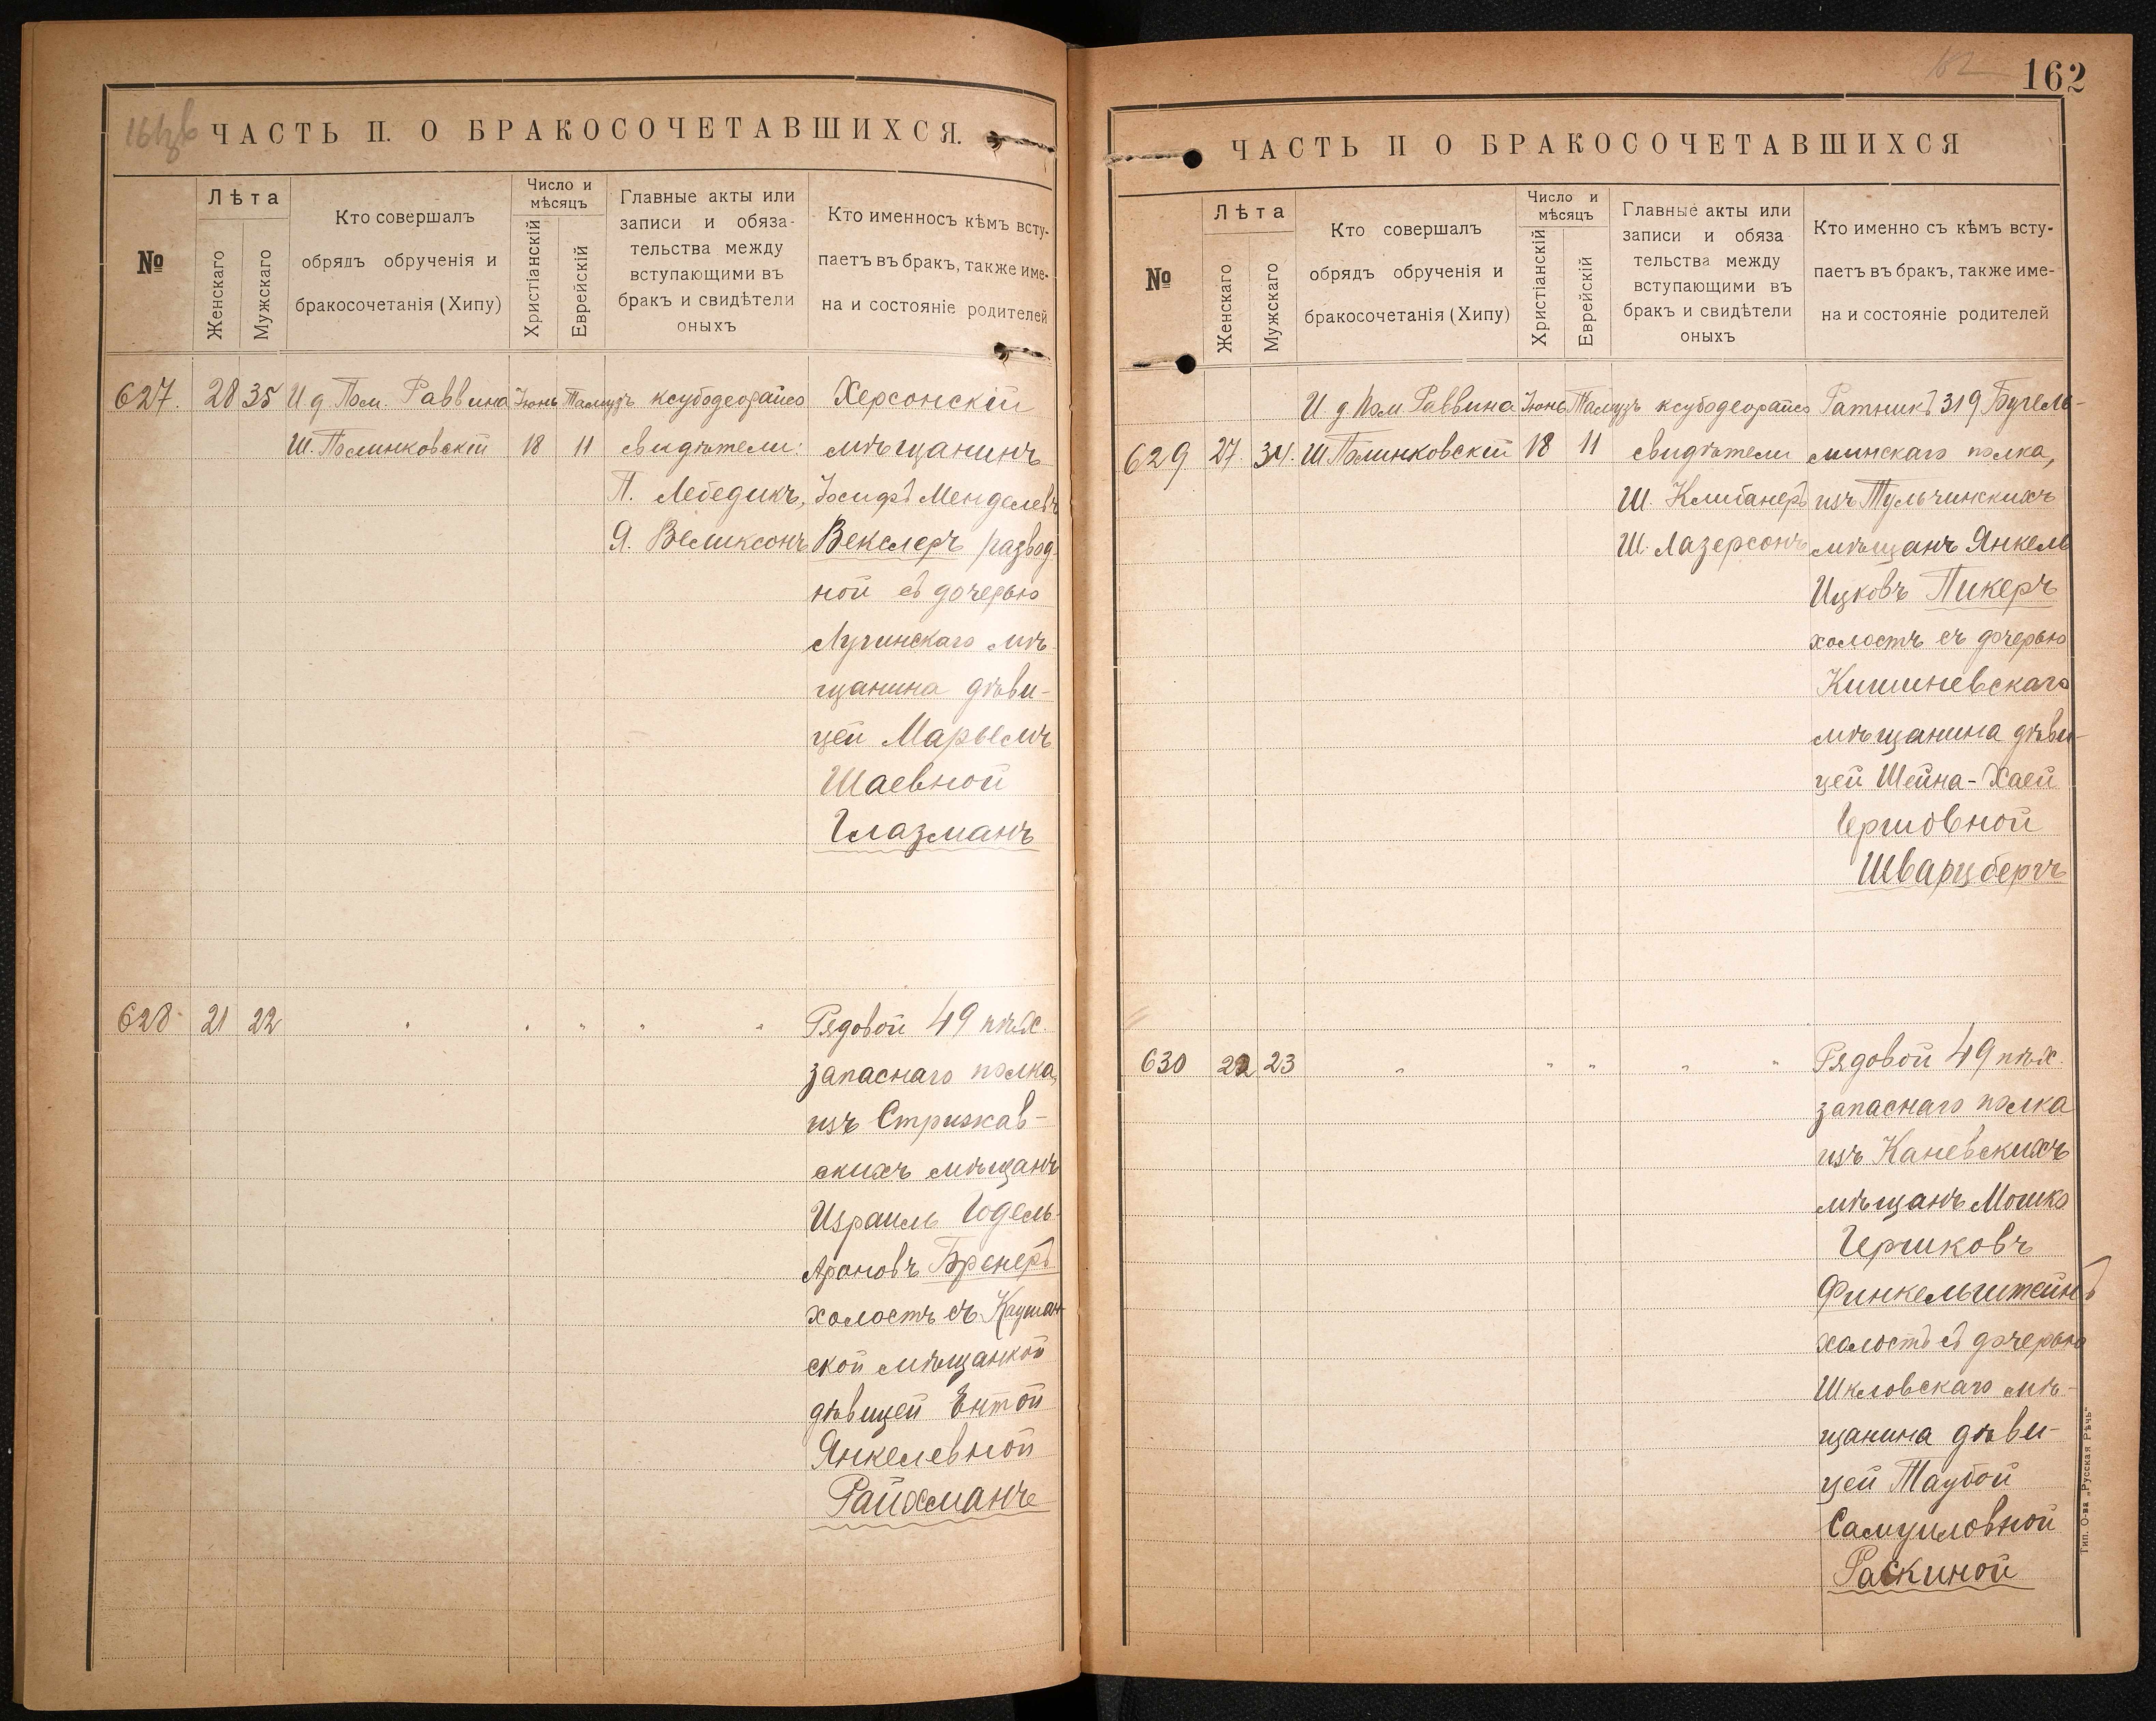 161 об
ЧАСТЬ П. О БРАКОСОЧЕТАВШИХСЯ.
№
Лѣта
Женскаго
Мужскаго
Кто совершалъ
обрядъ обрученія и
бракосочетанія (Хипу)
Число и
мѣсяцъ
Христіанскій
Еврейскій
Главные акты или
записи и обяза-
тельства между
вступающими въ
бракъ и свидѣтели
оныхъ
Кто именносъ кѣмъ всту-
паетъ въ бракъ, также име-
на и состояніе родителей
627. 28 35 И д Пом. Раввина Іюнь Тамузъ ксубодеорайсо Херсонскій
Ш. Полинковскій 18 11 свидѣтели: мѣщанинъ
П. Лебедикъ, Іосифъ Менделевъ
Я. Великсонъ Векслеръ развод-
ной съ дочерью
Лугинскаго мѣ-
щанина дѣви-
цей Марьемъ
Шаевной
Глазманъ
628 21 22 " " " " " Рядовой 49 пѣх.
запаснаго полка,
изъ Стрижав-
скихъ мѣщанъ
Израиль Годель-
Ароновъ Бренеръ
холостъ съ Каушан-
ской мѣщанкой
дѣвицей Ентой
Янкелевной
Райхманъ
162
162
ЧАСТЬ II О БРАКОСОЧЕТАВШИХСЯ
№
Лѣта
Женскаго
Мужскаго
Кто совершалъ
обрядъ обрученія и
бракосочетанія (Хипу)
Число и
мѣсяцъ
Христіанскій
Еврейскій
Главные акты или
записи и обяза
тельства между
вступающими въ
бракъ и свидѣтели
оныхъ
Кто именно съ кѣмъ всту-
паетъ въ бракъ, также име-
на и состояніе родителей
И д Пом Раввина Іюнь Тамузъ ксубодеорайсо Ратникъ 319 Бугуль-
629 27. 34. Ш Полинковскій 18 11 свидѣтели минскаго полка,
Ш. Клибанеръ изъ Тульчинскихъ
Ш. Лазерсонъ мѣщанъ Янкель
Ицковъ Пикеръ
холостъ съ дочерью
Кишиневскаго
мѣщанина дѣви-
цей Шейна-Хаей
Гершовной
Шварцбергъ
630 22 23 " " " " " Рядовой 49 пѣх.
запаснаго полка
изъ Каневскихъ
мѣщанъ Мошко
Гершковъ
Финкельштейнъ
холостъ съ дочерью
Шкловскаго мѣ-
щанина дѣви-
цей Таубой
Самуиловной
Раскиной
Тип. О-ва „Русская Рѣчь"